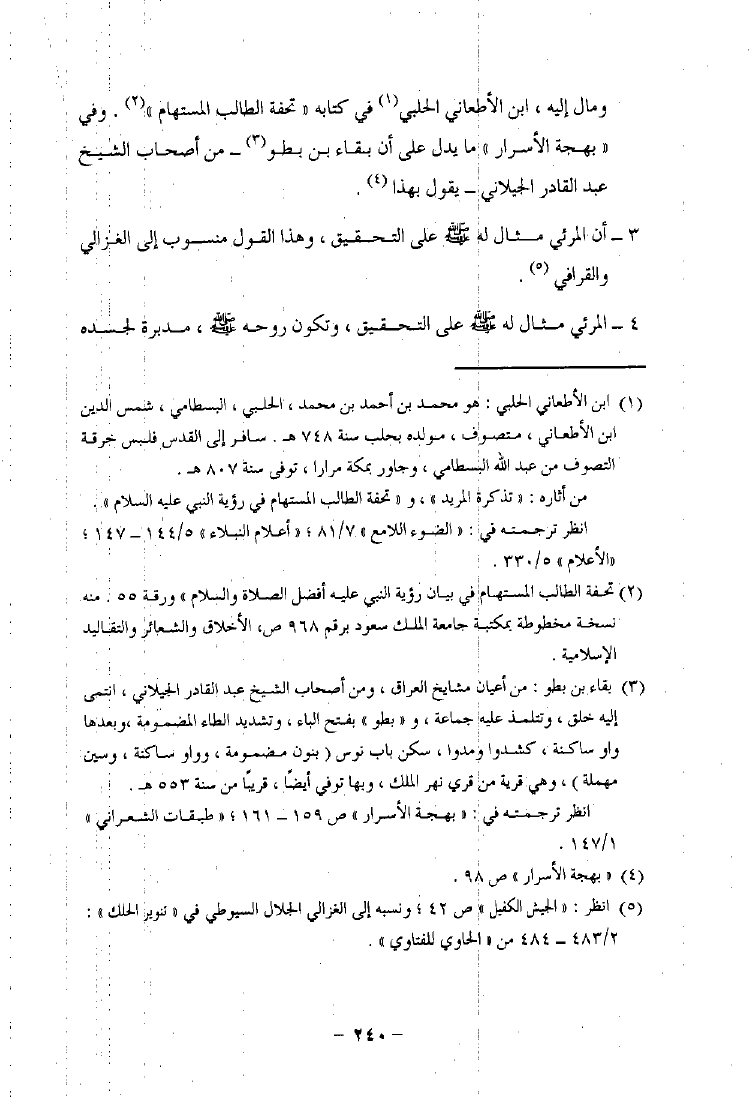 ومال إليه ، ابن الأطعاني الحلبي(١) في كتابه « تحفة الطالب المستهام »(٢) . وفي
« بهجة الأسرار » ما يدل على أن بقاء بن بطو(٣) ــ من أصحاب الشيخ
عبد القادر الجيلاني ــ يقول بهذا (٤) .
٣ ــ أن المرئي مثال له ﷺ على التحقيق ، وهذا القول منسوب إلى الغزالي
والقرافي (٥) .
٤ ــ المرئي مثال له ﷺ على التحقيق ، وتكون روحه ﷺ ، مدبرة لجسده
(١) ابن الأطعاني الحلبي : هو محمد بن أحمد بن محمد ، الحلبي ، البسطامي ، شمس الدين
ابن الأطعاني ، متصوف ، مولده بحلب سنة ٧٤٨ هـ . سافر إلى القدس فلبس خرقة
التصوف من عبد الله البسطامي ، وجاور بمكة مرارا ، توفى سنة ٨٠٧ هـ .
من أثاره : « تذكرة المريد » ، و « تحفة الطالب المستهام في رؤية النبي عليه السلام » .
انظر ترجمته في : « الضوء اللامع » ٨١/٧ ؛ « أعلام النبلاء » ١٤٤/٥ ــ ١٤٧ ؛
«الأعلام » ٣٣٠/٥ .
(٢) تحفة الطالب المستهام في بيان رؤية النبي عليه أفضل الصلاة والسلام » ورقة ٥٥ . منه
نسخة مخطوطة بمكتبة جامعة الملك سعود برقم ٩٦٨ ص، الأخلاق والشعائر والتقاليد
الإسلامية .
(٣) بقاء بن بطو : من أعيان مشايخ العراق ، ومن أصحاب الشيخ عبد القادر الجيلاني ، انتمى
إليه خلق ، وتتلمذ عليه جماعة ، و « بطو » بفتح الباء ، وتشديد الطاء المضمومة ،وبعدها
واو ساكنة ، كشدوا ومدوا ، سكن باب نوس ( بنون مضمومة ، وواو ساكنة ، وسين
مهملة ) ، وهي قرية من قري نهر الملك ، وبها توفي أيضًا ، قريبًا من سنة ٥٥٣ هـ .
انظر ترجمته في : « بهجة الأسرار » ص ١٥٩ ــ ١٦١ ؛ « طبقات الشعراني »
١٤٧/١ .
(٤) « بهجة الأسرار » ص ٩٨ .
(٥) انظر : « الجيش الكفيل » ص ٤٢ ؛ ونسبه إلى الغزالي الجلال السيوطي في « تنوير الحلك » :
٤٨٣/٢ ــ ٤٨٤ من « الحاوي للفتاوي » .
– ٢٤٠ –